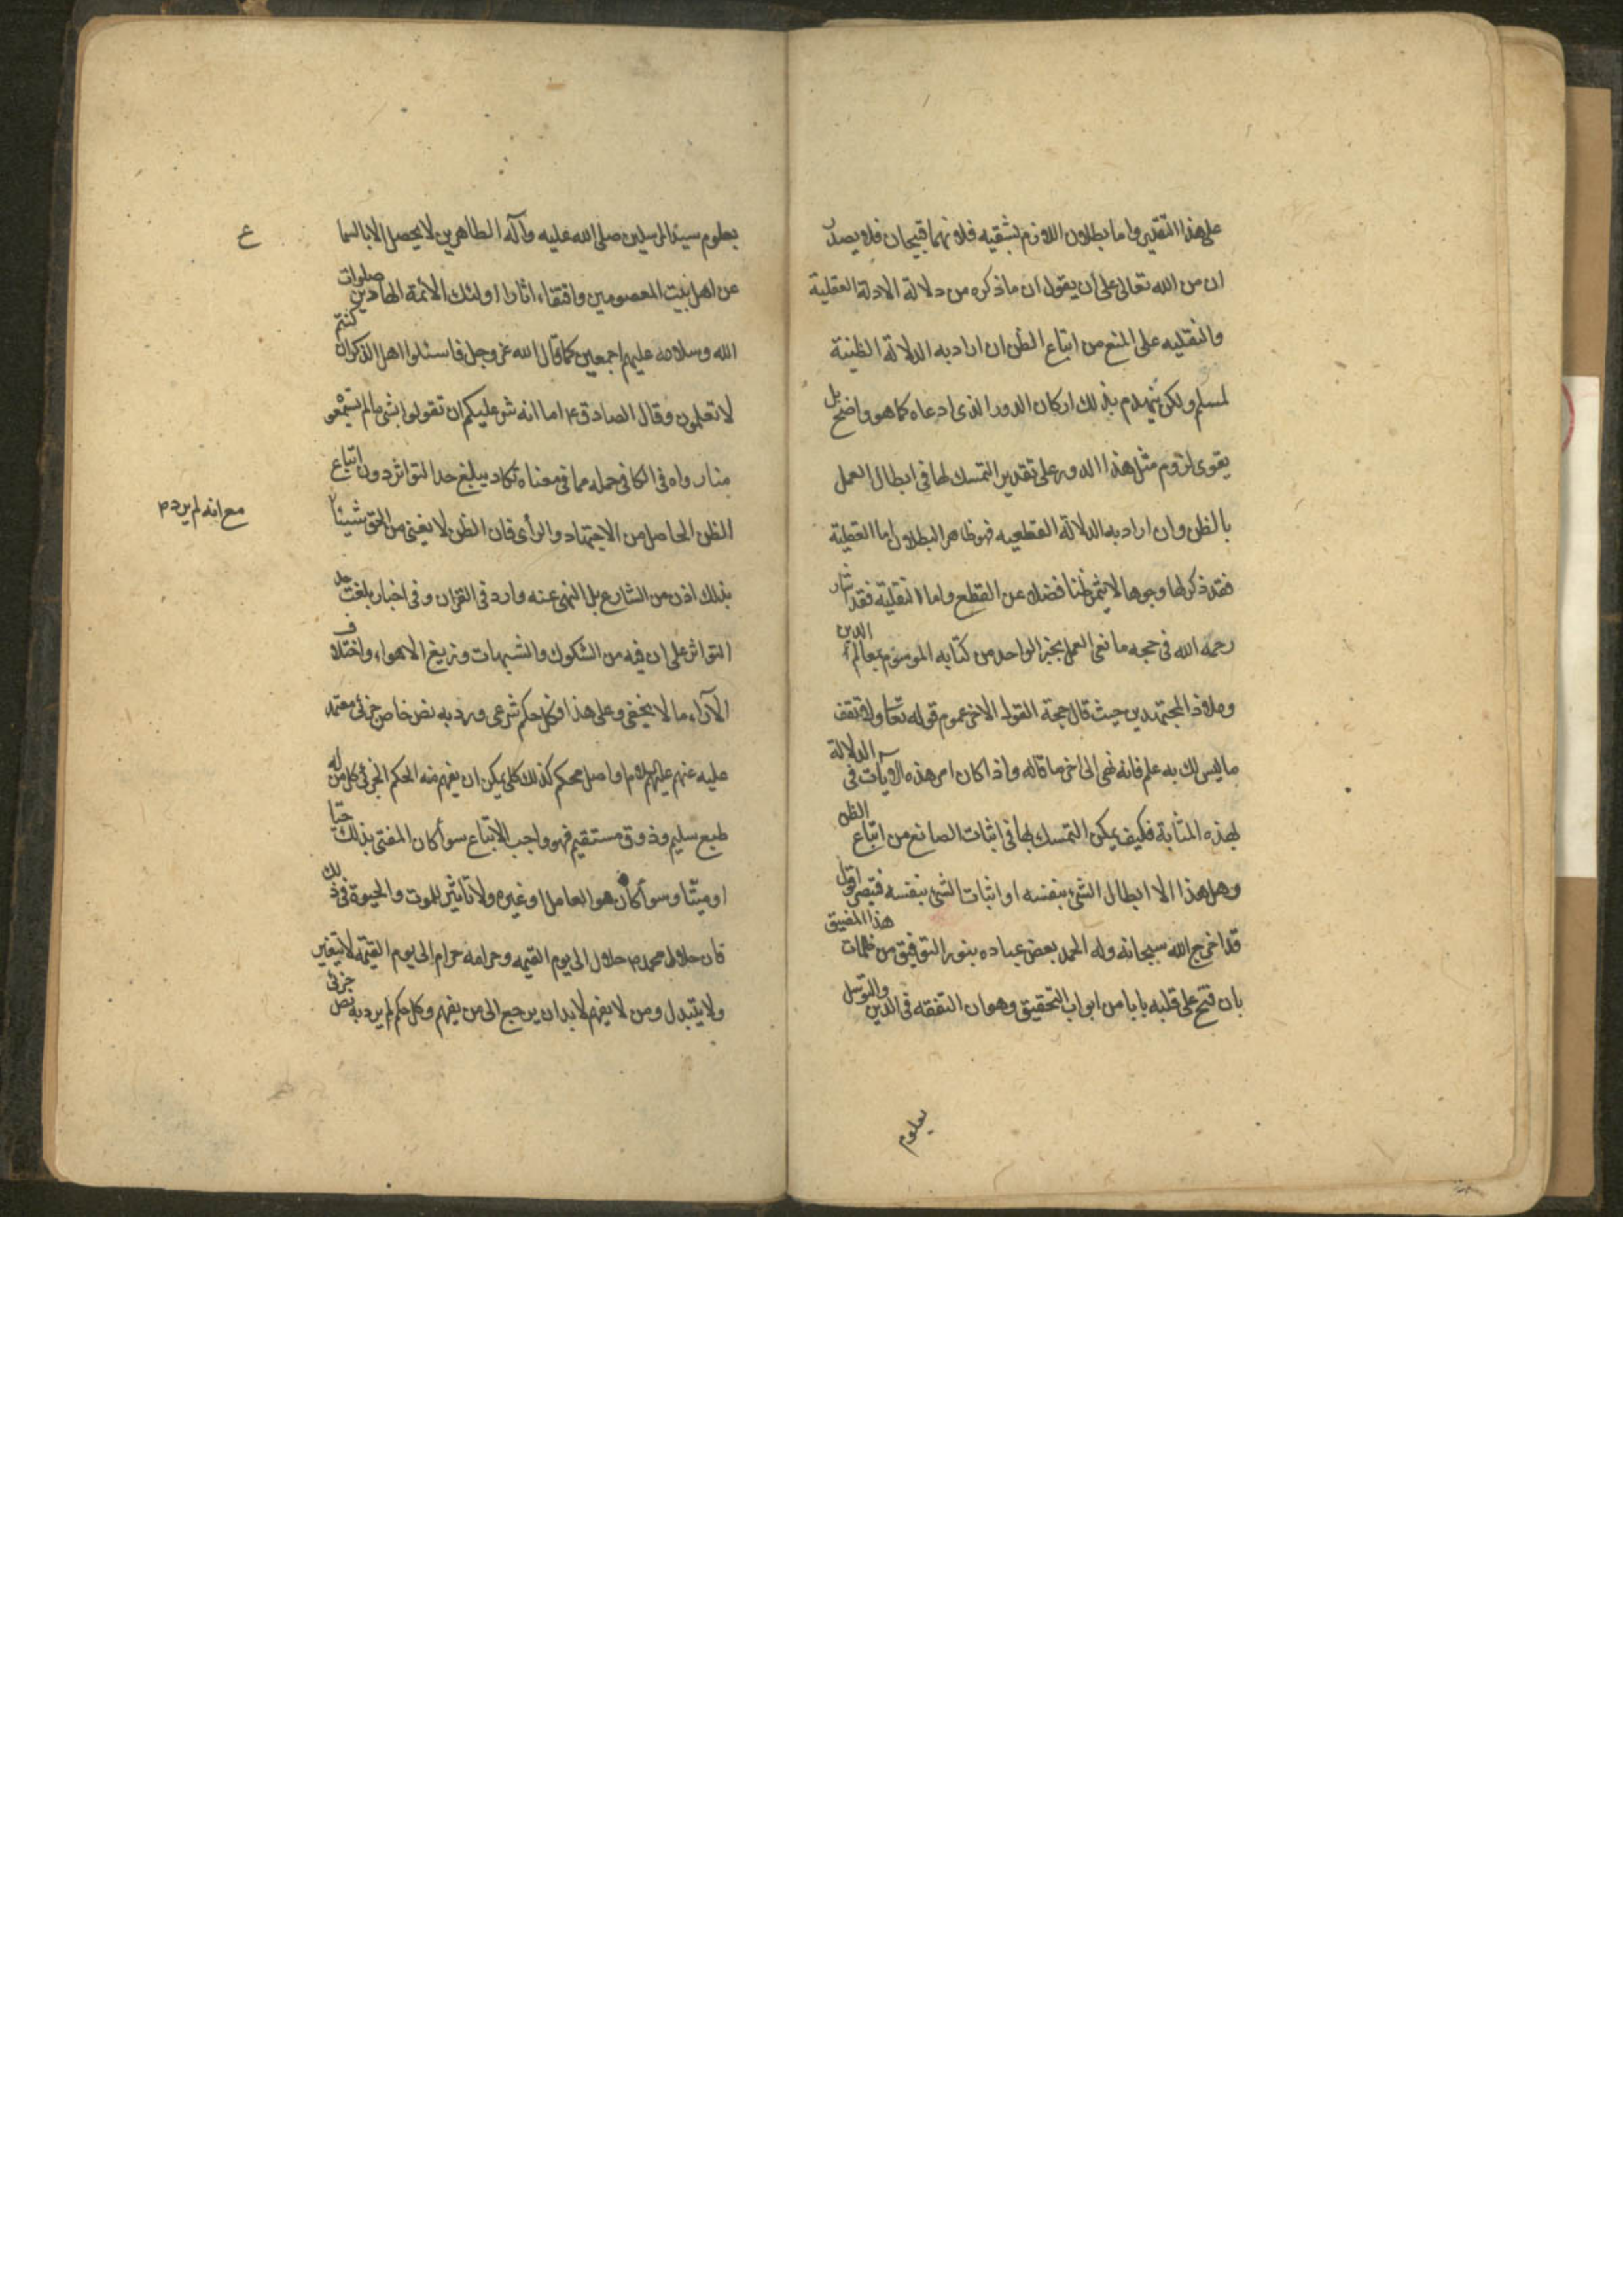 على هذا التقدير واما بطلان اللازم بشقيه فلانهما قبيحان فلا يصدر
ان من الله تعالى على أن يقول ان ماذكره من دلالة الادلة العقلية
والنقليه على المنع من اتباع الظن ان اراد به الدلالة الظنية
لمسلم ولكن ينهدم بذلك اركان الدور الذى ادعاه كما هو واضح بل
يقوى لزوم مثل هذا الدور على تقدير التمسك لها فى ابطال العمل
بالظن وان اراد به الدلالة القطعيه فهو ظاهر البطلان اما العقلية
فقد ذكر لها وجوها لا يثمر ظنا فضلا عن القطع واما النقلية فقد
رحمه الله فى حجه مانعى العمل بخبر الواحد من كتابه الموسوم بمعالم الدين
وملاذ المجتهدين حيث قال حجة القول الاخر عموم قوله تعا ولا تقف
ماليس لك به علم فانه نهى الى اخر ما قاله واذا كان امر هذه الآيات فى الدلالة
بهذه المثابة فكيف يمكن التمسك بها فى اثبات المانع من اتباع الظن
وهل هذا الا ابطال الشئ بنفسه او اثبات الشئ بنفسه فتبصر اقول
قد اخرج الله سبحانه وله الحمد بعض عباده بنور التوفيق من ظلمات هذا المضيق
بان فتح على قلبه بابا من ابواب التحقيق وهو ان التفقه فى الدين والتوسل
بعلوم
بعلوم سيد المرسلين صلى الله عليه وآله الطاهرين لا يحصل الا بالسما ع
عن اهل بيت المعصومين واقتفاء اثار اولئك الائمة الهادين صلوات
الله وسلامه عليهم اجمعين كما قال الله عز وجل فاسئلوا اهل الذكر ان كنتم
لا تعلمون وقال الصادق ع اما انه شر عليكم ان تقولوا بشئ مالم تسمعوه
منا رواه فى الكافى جمله مما فى معناه تكاد يبلغ حد التواتر دون اتباع
الظن الحاصل من الاجتهاد والرأى فان الظن لا يغنى من الحق شيئا
مع انه لم يرد م
بذلك اذن من الشارع بل النهى عنه وارد فى القران وفى اخبار بلغت حد
التواتر على ان فيه من الشكوك والشبهات وزيغ الاهواء واختلاف
الآراء ما لا يخفى وعلى هذا فكل حكم شرعى ورد به نص خاص جزئى معتمد
عليه عنهم عليهم السلام او اصل محكم كذلك كلى يمكن ان يفهم منه الحكم الجزئى كل من له
طبع سليم وذوق مستقيم فهو واجب الاتباع سوأ كان المفتى بذلك حيا
او ميتا وسوأ كان هو العامل او غيره ولا تاثير للموت والحيوة فى ذلك
فان حلال محمد ص حلال الى يوم القيمه وحرامه حرام الى يوم القيمة لا يتغير
ولا يتبدل ومن لا يفهم لابد ان يرجع الى من يفهم وكل حكم لم يرد به نص جزئى